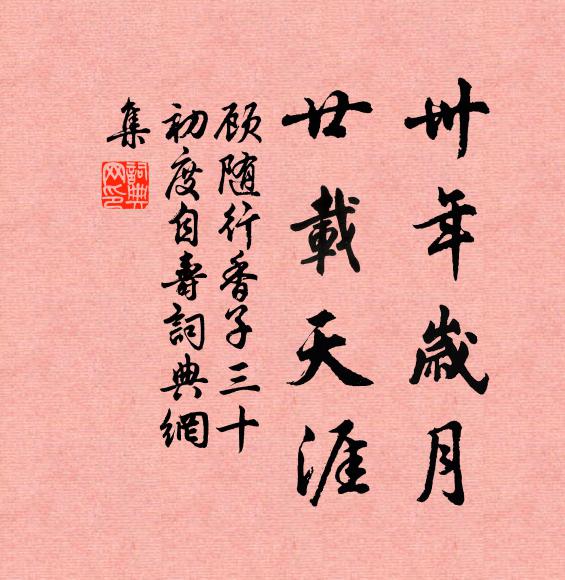 卅年歲月
廿載天涯
顾随行香子三十
初度自壽詞典網
集
詞典網印